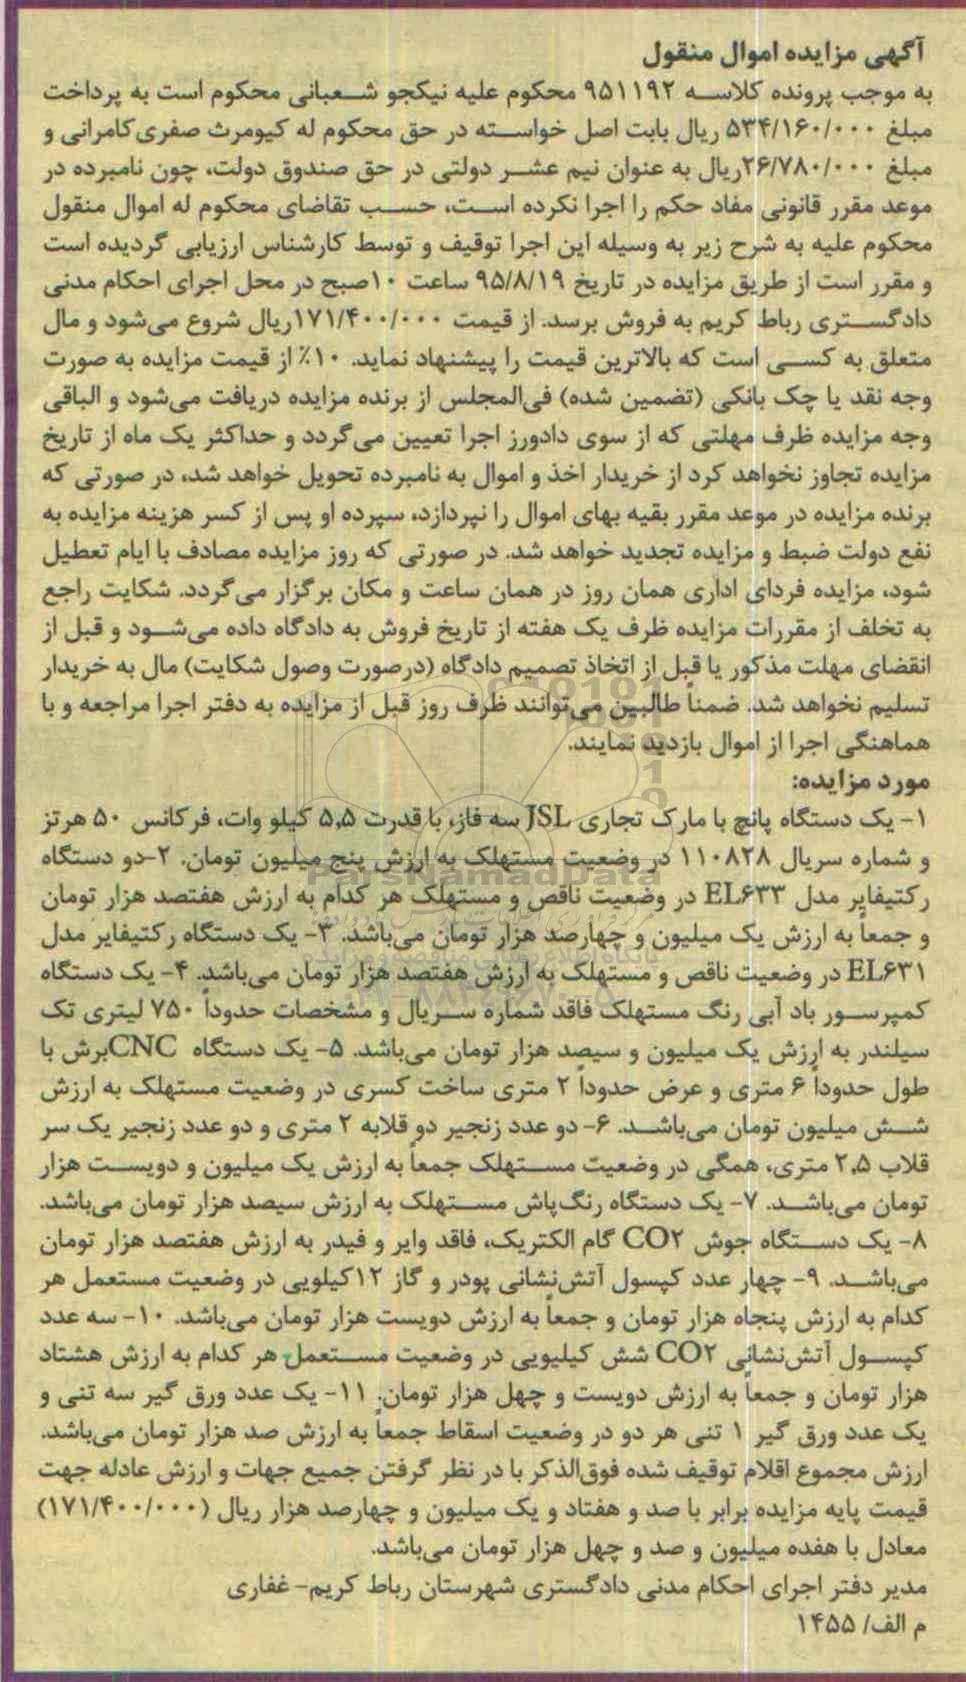 آگهی مزایده اموال منقول
به موجب پرونده کلاسه ۹۵۱۱۹۲ محکوم علیه نیکجو شعبانی محکوم است به پرداخت
مبلغ ۵۳۴/۱۶۰/۰۰۰ ریال بابت اصل خواسته در حق محکوم له کیومرث صفری کامرانی و
مبلغ ۲۶/۷۸۰/۰۰۰ریال به عنوان نیم عشر دولتی در حق صندوق دولت، چون نامبرده در
موعد مقرر قانونی مفاد حکم را اجرا نکرده است، حسب تقاضای محکوم له اموال منقول
محکوم علیه به شرح زیر به وسیله این اجرا توقیف و توسط کارشناس ارزیابی گردیده است
و مقرر است از طریق مزایده در تاریخ ۹۵/۸/۱۹ ساعت ۱۰صبح در محل اجرای احکام مدنی
دادگستری رباط کریم به فروش برسد. از قیمت ۱۷۱/۴۰۰/۰۰۰ریال شروع می‌شود و مال
متعلق به کسی است که بالاترین قیمت را پیشنهاد نماید. ۱۰٪ از قیمت مزایده به صورت
وجه نقد یا چک بانکی (تضمین شده) فی‌المجلس از برنده مزایده دریافت می‌شود و الباقی
وجه مزایده ظرف مهلتی که از سوی دادورز اجرا تعیین می‌گردد و حداکثر یک ماه از تاریخ
مزایده تجاوز نخواهد کرد از خریدار اخذ و اموال به نامبرده تحویل خواهد شد، در صورتی که
برنده مزایده در موعد مقرر بقیه بهای اموال را نپردازد، سپرده او پس از کسر هزینه مزایده به
نفع دولت ضبط و مزایده تجدید خواهد شد. در صورتی که روز مزایده مصادف با ایام تعطیل
شود، مزایده فردای اداری همان روز در همان ساعت و مکان برگزار می‌گردد. شکایت راجع
به تخلف از مقررات مزایده ظرف یک هفته از تاریخ فروش به دادگاه داده می‌شود و قبل از
انقضای مهلت مذکور یا قبل از اتخاذ تصمیم دادگاه (درصورت وصول شکایت) مال به خریدار
تسلیم نخواهد شد. ضمناً طالبین می‌توانند ظرف روز قبل از مزایده به دفتر اجرا مراجعه و با
هماهنگی اجرا از اموال بازدید نمایند.
مورد مزایده:
۱- یک دستگاه پانچ با مارک تجاری JSL سه فاز، با قدرت ۵,۵ کیلو وات، فرکانس ۵۰ هرتز
و شماره سریال ۱۱۰۸۲۸ در وضعیت مستهلک به ارزش پنج میلیون تومان. ۲-دو دستگاه
رکتیفایر مدل EL۶۳۳ در وضعیت ناقص و مستهلک هر کدام به ارزش هفتصد هزار تومان
و جمعاً به ارزش یک میلیون و چهارصد هزار تومان می‌باشد. ۳- یک دستگاه رکتیفایر مدل
EL۶۳۱ در وضعیت ناقص و مستهلک به ارزش هفتصد هزار تومان می‌باشد. ۴- یک دستگاه
کمپرسور باد آبی رنگ مستهلک فاقد شماره سریال و مشخصات حدوداً ۷۵۰ لیتری تک
سیلندر به ارزش یک میلیون و سیصد هزار تومان می‌باشد. ۵- یک دستگاه CNCبرش با
طول حدوداً ۶ متری و عرض حدوداً ۲ متری ساخت کسری در وضعیت مستهلک به ارزش
شش میلیون تومان می‌باشد. ۶- دو عدد زنجیر دو قلابه ۲ متری و دو عدد زنجیر یک سر
قلاب ۲,۵ متری، همگی در وضعیت مستهلک جمعاً به ارزش یک میلیون و دویست هزار
تومان می‌باشد. ۷- یک دستگاه رنگ‌پاش مستهلک به ارزش سیصد هزار تومان می‌باشد.
۸- یک دستگاه جوش CO۲ گام الکتریک، فاقد وایر و فیدر به ارزش هفتصد هزار تومان
می‌باشد. ۹- چهار عدد کپسول آتش‌نشانی پودر و گاز ۱۲کیلویی در وضعیت مستعمل هر
کدام به ارزش پنجاه هزار تومان و جمعاً به ارزش دویست هزار تومان می‌باشد. ۱۰- سه عدد
کپسول آتش‌نشانی CO۲ شش کیلیویی در وضعیت مستعمل هر کدام به ارزش هشتاد
هزار تومان و جمعاً به ارزش دویست و چهل هزار تومان. ۱۱- یک عدد ورق گیر سه تنی و
یک عدد ورق گیر ۱ تنی هر دو در وضعیت اسقاط جمعاً به ارزش صد هزار تومان می‌باشد.
ارزش مجموع اقلام توقیف شده فوق‌الذکر با در نظر گرفتن جمیع جهات و ارزش عادله جهت
قیمت پایه مزایده برابر با صد و هفتاد و یک میلیون و چهارصد هزار ریال (۱۷۱/۴۰۰/۰۰۰)
معادل با هفده میلیون و صد و چهل هزار تومان می‌باشد.
مدیر دفتر اجرای احکام مدنی دادگستری شهرستان رباط کریم- غفاری
م الف/ ۱۴۵۵
ParsNamadData